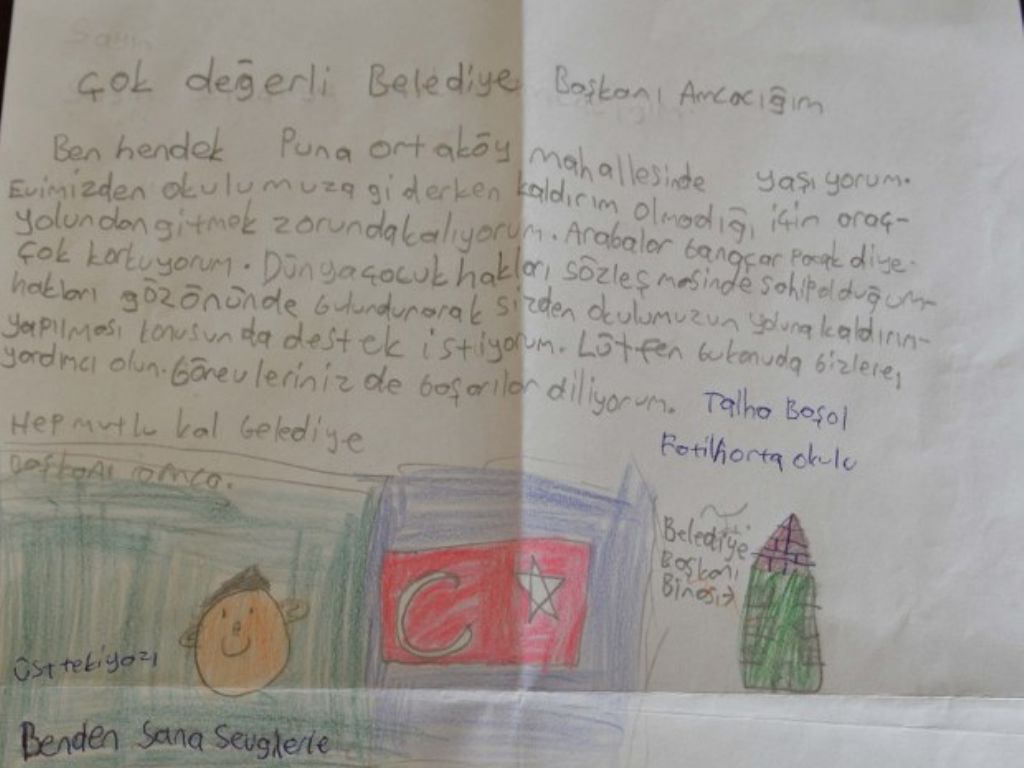 Sayın
Çok değerli Belediye Başkanı Amcacığım
Ben hendek Puna ortaköy mahallesinde yaşıyorum.
Evimizden okulumuza giderken kaldırım olmadığı için araç-
yolundan gitmek zorunda kalıyorum. Arabalar bana çarpacak diye.
çok korkuyorum. Dünya çocuk hakları sözleşmesinde sahip olduğum
hakları göz önünde bulundurarak sizden okulumuzun yoluna kaldırım-
yapılması konusunda destek istiyorum. Lütfen bu konuda bizlere,
yardımcı olun. Görevlerinizde başarılar diliyorum. Talha Başol
Hep mutlu kal belediye Fatih orta okulu
başkanı amca.
Belediye
Başkanı
Binası→
Üstteki yazı
Benden Sana Sevgilerle